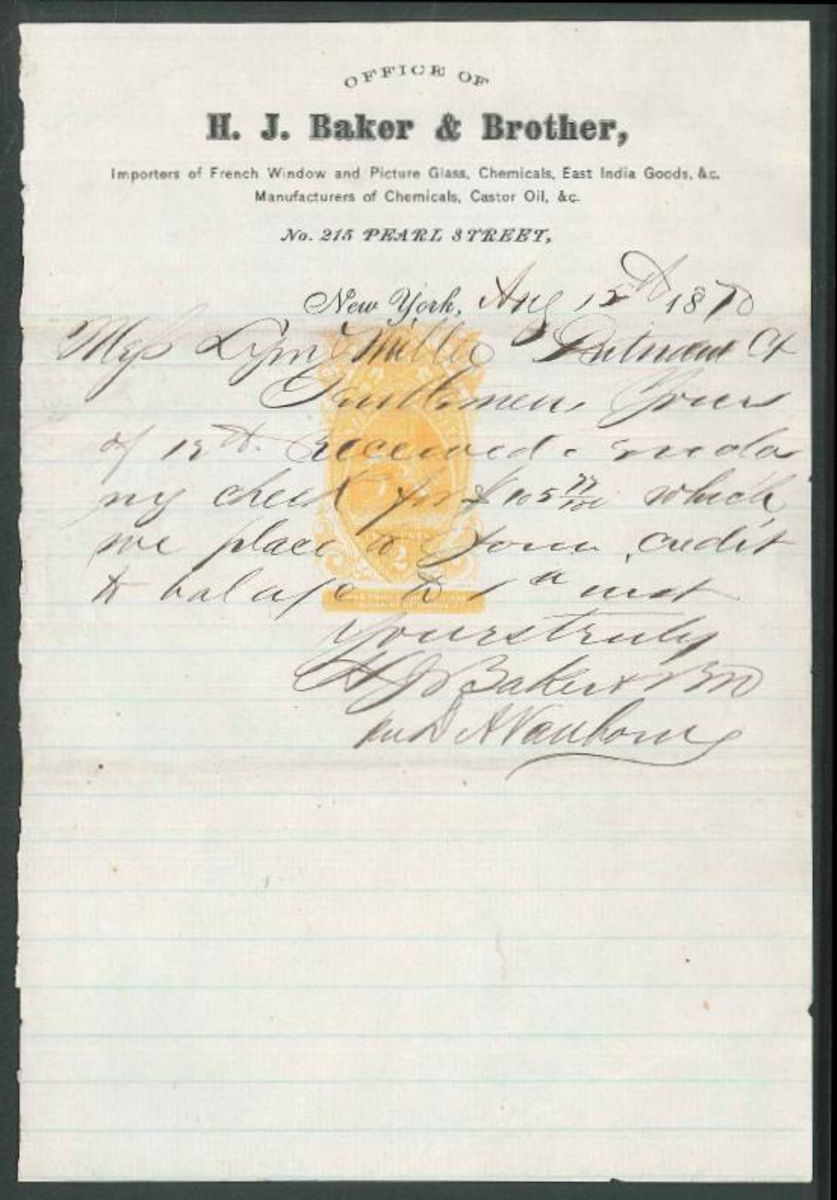 OFFICE OF
H. J. Baker & Brother,
Importers of French Window and Picture Glass, Chemicals, East India Goods, &c.
Manufacturers of Chemicals, Castor Oil, &c.
No. 215 PEARL STREET,
New York, Aug 15th 1870
Mess Lym & Miller Putnam Ct
Gentlemen, Yours
of 12th received. inclos
ing check for $105 77/100 which
we place to your credit
to bal a/c to 1st inst
Yours truly
H J Baker & Bro